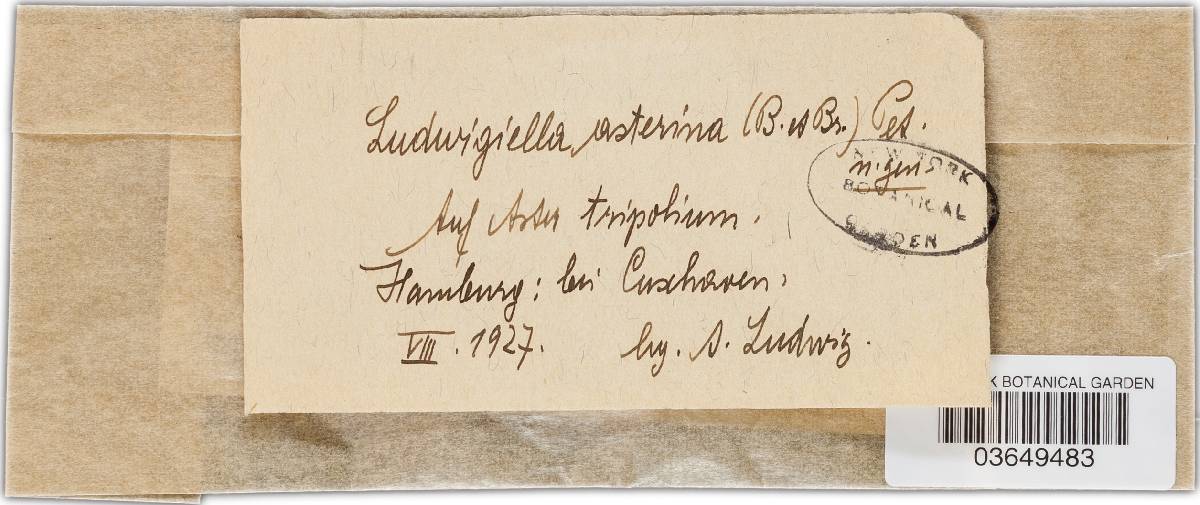 Ludwigiella asterina (B. et Br.) Pet.
n. gen.
NEW YORK
BOTANICAL
GARDEN
Auf Aster tripolium.
Hamburg: bei Cuxhaven.
VIII. 1927. leg. A. Ludwig.
K BOTANICAL GARDEN
03649483